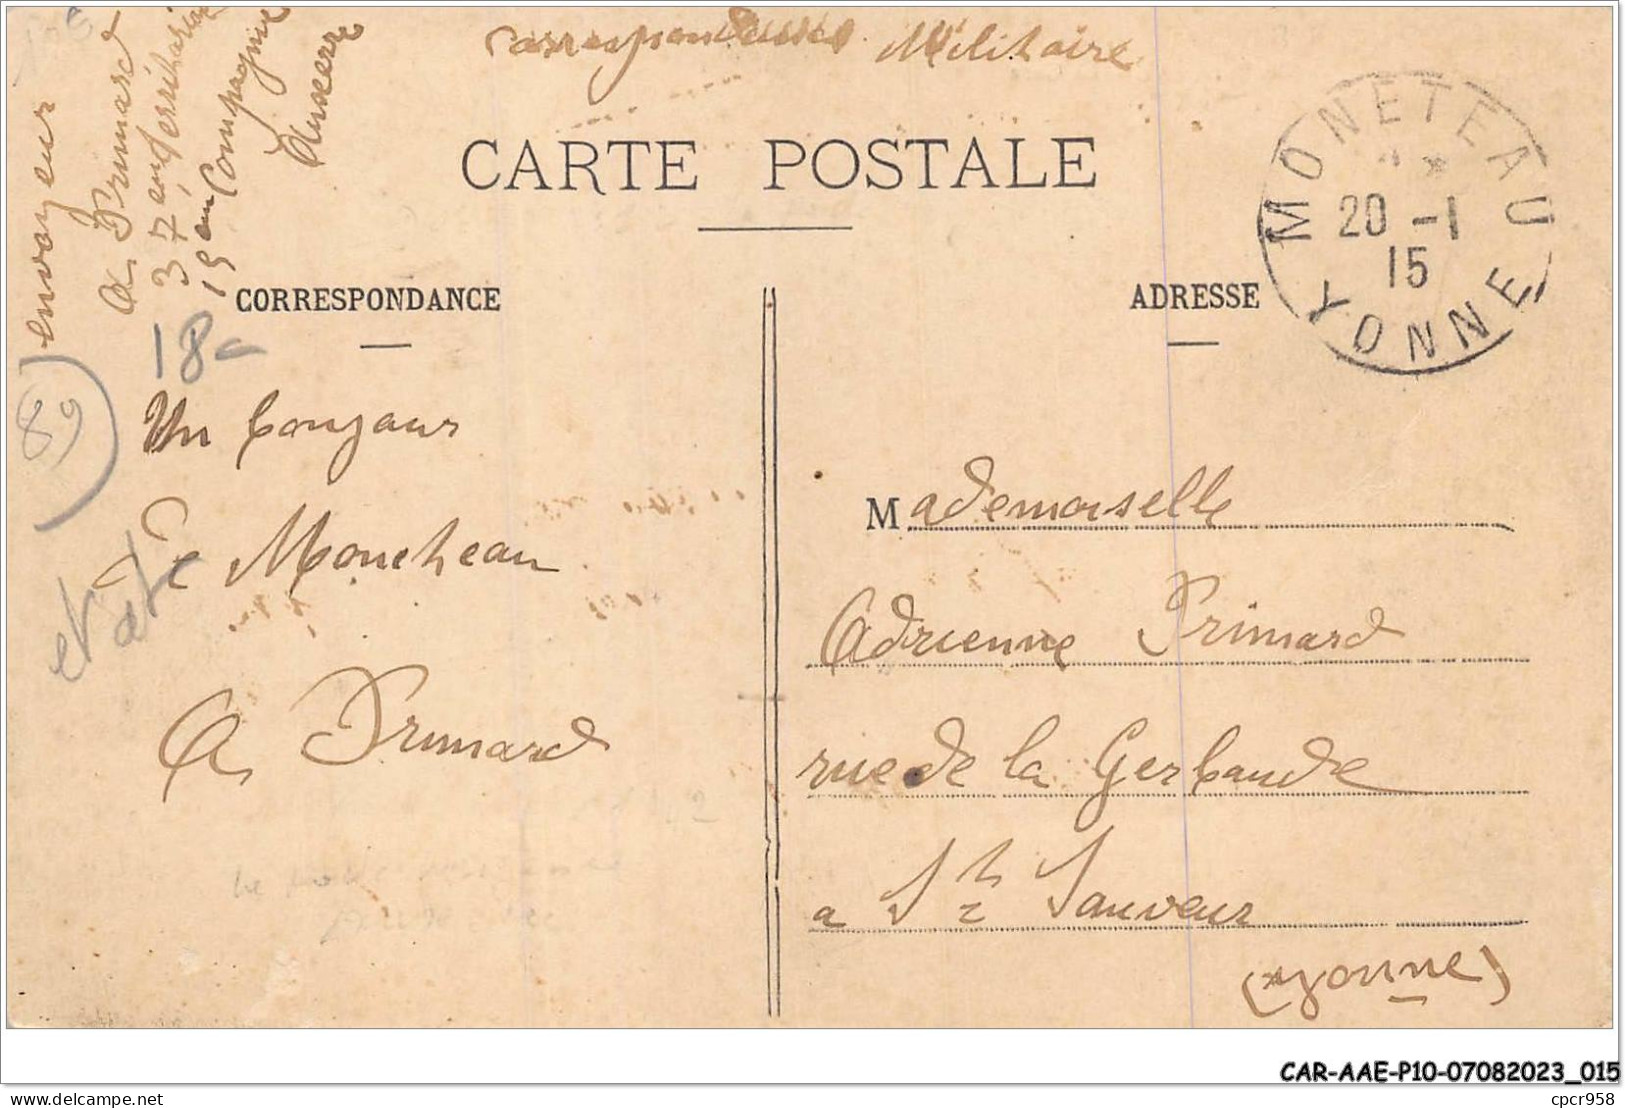 Correspondance Militaire
envoyeur
A. Primard
37 em territorial
15 em Compagnie
Auxerre
CARTE POSTALE
MONETEAU
20 -1
15
YONNE
CORRESPONDANCE
ADRESSE
18
89
Un bonjour
de Monetheau
A. Primard
etat
Mademoiselle
Adrienne Primard
rue de la Gerbaude
a St Sauveur
(yonne)
CAR-AAE-P10-07082023_015
delcampe.net
cpcr958